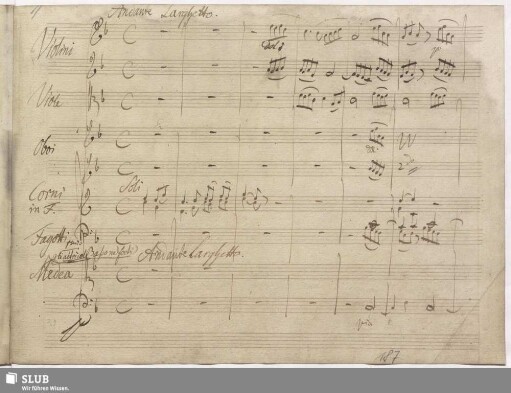 Andante Larghetto.
Violini
Viole
Oboi
Soli
Corni
in F.
Fagotti
Andante Larghetto.
Medea
187
SLUB
Wir führen Wissen.